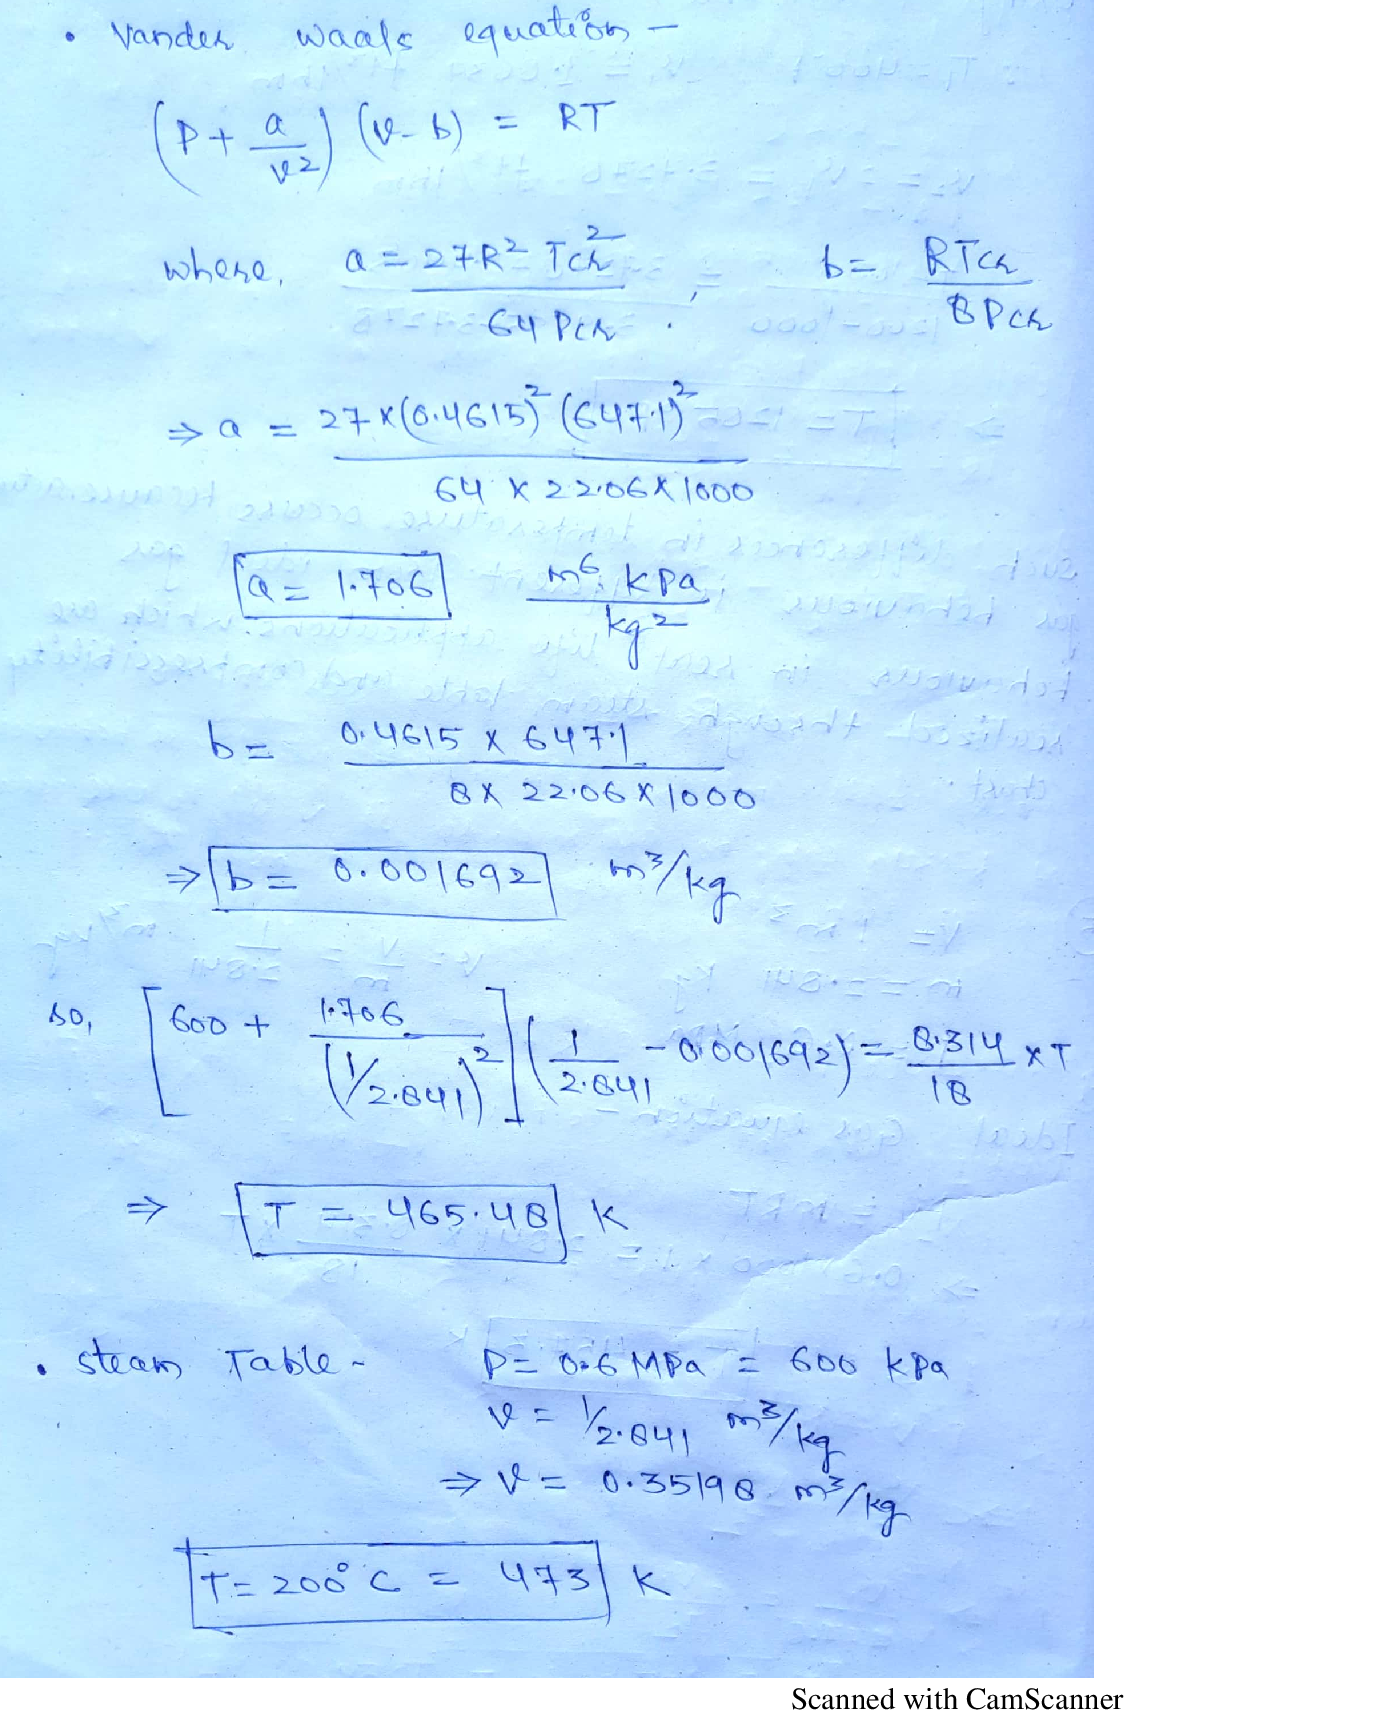 • Vander waals equation –
(P + a/v²) (v - b) = RT
where, a = 27R² Tcr² / 64 Pcr , b = RTcr / 8Pcr
⇒ a = 27 × (0.4615)² (647.1)² / 64 × 22.06 × 1000
a = 1.706 m⁶ kPa / kg²
b = 0.4615 × 647.1 / 8 × 22.06 × 1000
⇒ b = 0.001692 m³/kg
so, [600 + 1.706 / (1/2.841)²] (1/2.841 - 0.001692) = 8.314/18 × T
⇒ T = 465.48 K
• steam Table – P = 0.6 MPa = 600 kPa
v = 1/2.841 m³/kg
⇒ v = 0.35198 m³/kg
T = 200°C = 473 K
Scanned with CamScanner